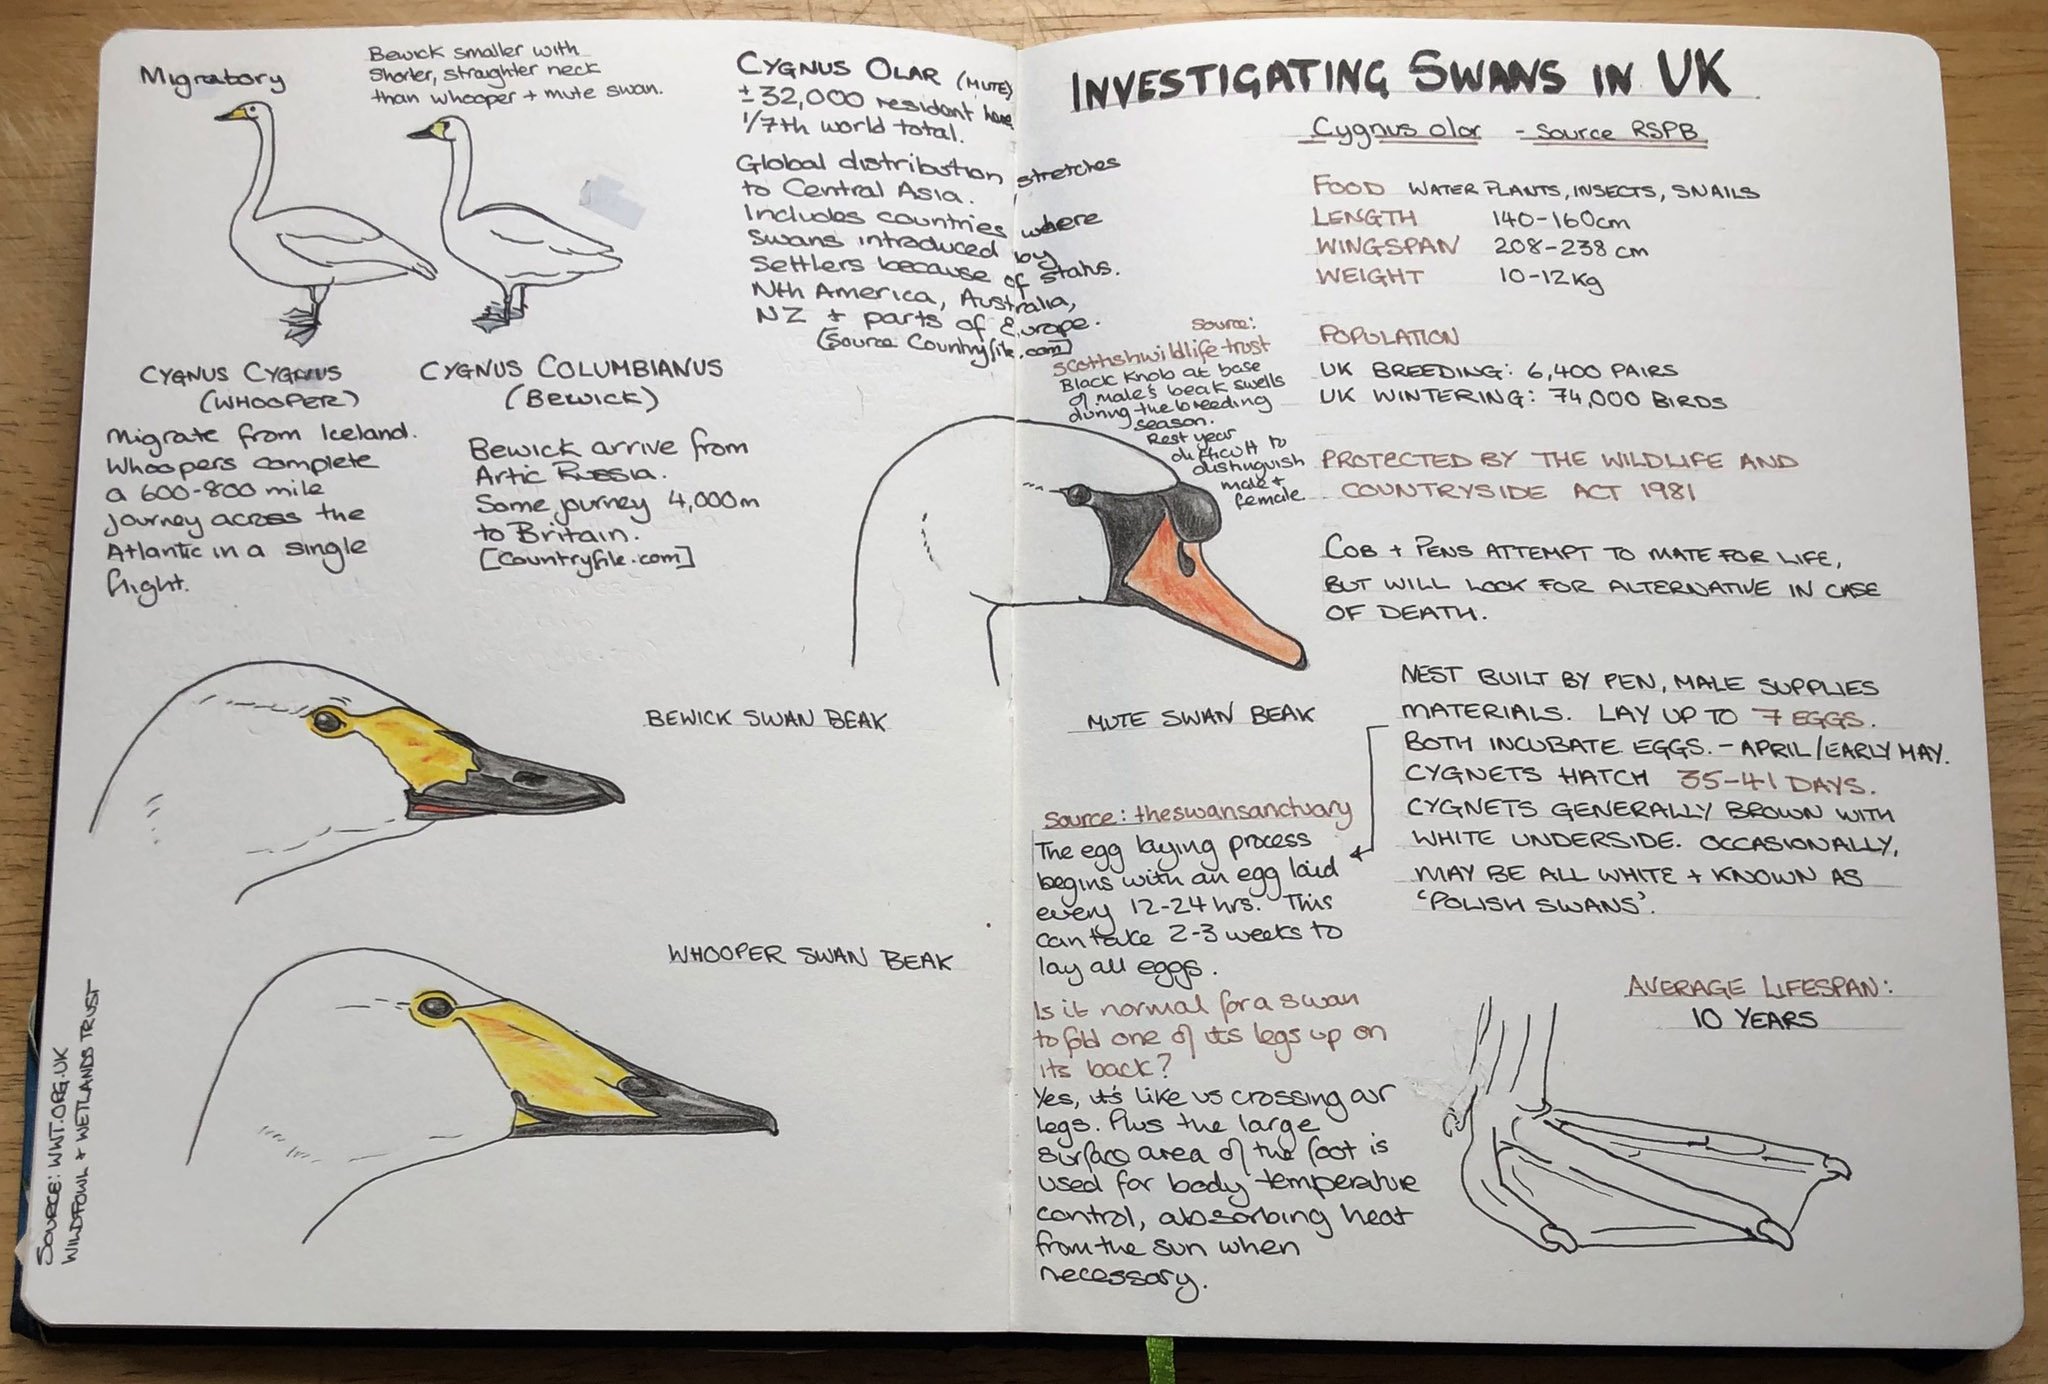 Migratory
Bewick smaller with
shorter, straighter neck
than whooper + mute swan.
CYGNUS CYGNUS
(WHOOPER)
Migrate from Iceland.
Whoopers complete
a 600-800 mile
journey across the
Atlantic in a single
flight.
CYGNUS COLUMBIANUS
(BEWICK)
Bewick arrive from
Artic Russia.
Some journey 4,000m
to Britain.
[Countryfile.com]
CYGNUS OLAR (MUTE)
± 32,000 resident here
1/7th world total.
Global distribution stretches
to Central Asia.
Includes countries where
swans introduced by
settlers because of status.
Nth America, Australia,
NZ + parts of Europe.
(Source Countryfile.com]
BEWICK SWAN BEAK
WHOOPER SWAN BEAK
SOURCE: WWT.ORG.UK
WILDFOWL + WETLANDS TRUST
INVESTIGATING SWANS IN UK
Cygnus olar - Source RSPB
FOOD WATER PLANTS, INSECTS, SNAILS
LENGTH 140-160cm
WINGSPAN 208-238 cm
WEIGHT 10-12kg
POPULATION
UK BREEDING: 6,400 PAIRS
UK WINTERING: 74,000 BIRDS
PROTECTED BY THE WILDLIFE AND
COUNTRYSIDE ACT 1981
COB + PENS ATTEMPT TO MATE FOR LIFE,
BUT WILL LOOK FOR ALTERNATIVE IN CASE
OF DEATH.
NEST BUILT BY PEN, MALE SUPPLIES
MATERIALS. LAY UP TO 7 EGGS.
BOTH INCUBATE EGGS. - APRIL/EARLY MAY.
CYGNETS HATCH 35-41 DAYS.
CYGNETS GENERALLY BROWN WITH
WHITE UNDERSIDE. OCCASIONALLY,
MAY BE ALL WHITE + KNOWN AS
'POLISH SWANS'.
AVERAGE LIFESPAN:
10 YEARS
source:
scottishwildlifetrust
Black knob at base
of male's beak swells
during the breeding
season.
Rest year
difficult to
distinguish
male +
female
MUTE SWAN BEAK
Source: theswansanctuary
The egg laying process
begins with an egg laid
every 12-24 hrs. This
can take 2-3 weeks to
lay all eggs.
Is it normal for a swan
to fold one of its legs up on
its back?
Yes, it's like us crossing our
legs. Plus the large
surface area of the foot is
used for body temperature
control, absorbing heat
from the sun when
necessary.